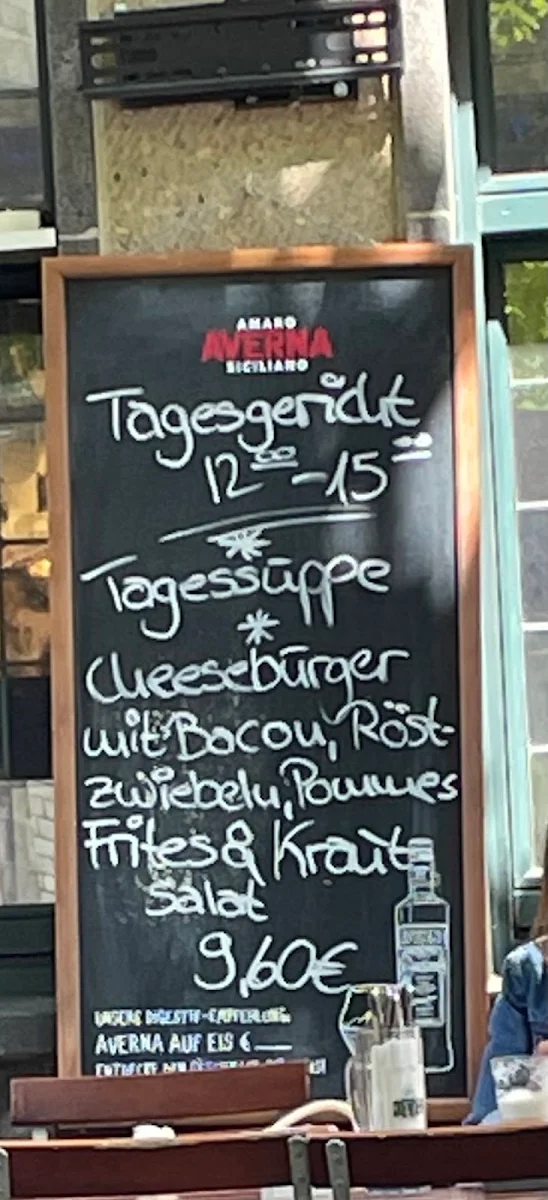 AMARO
AVERNA
SICILIANO
Tagesgericht
12⁰⁰-15⁰⁰
Tagessuppe
Cheeseburger
mit Bacon, Röst-
zwiebeln, Pommes
Frites & Kraut
Salat
9,60€
UNSERE DIGESTIF-EMPFEHLUNG
AVERNA AUF EIS €
ENTDECKE DEN